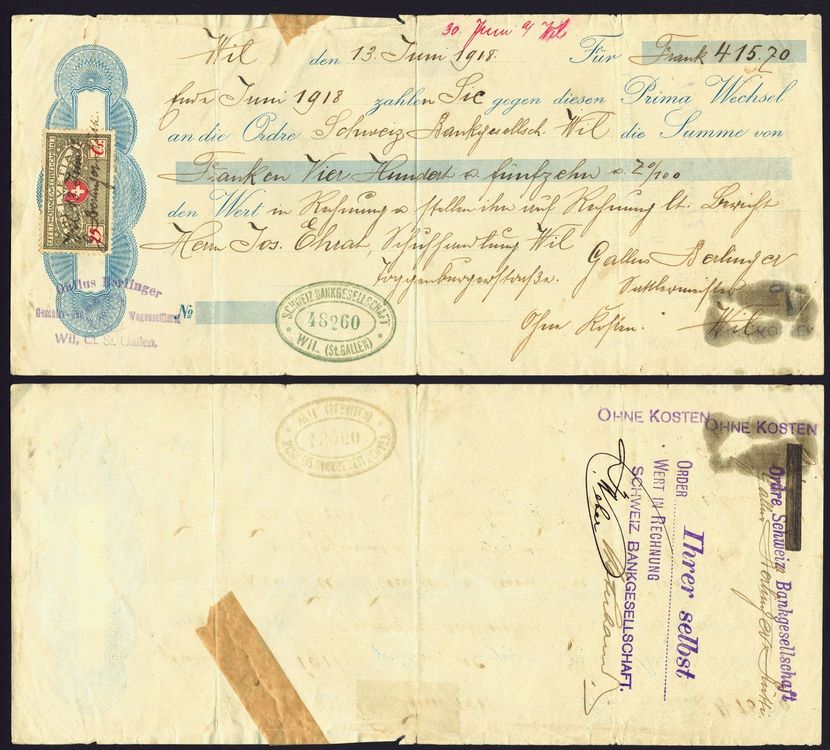 30. Juni a/ Wil
Wil den 13. Juni 1918. Für Frank 415.70
Ende Juni 1918 zahlen Sie gegen diesen Prima Wechsel
an die Ordre Schweiz Bankgesellsch. Wil die Summe von
Franken Vier Hundert u. fünfzehn u. 70/100
den Wert in Rechnung u. stellen ihn auf Rechnung lt. Bericht
Herrn Jos. Ehrat, Schuhhandlung Wil
Toggenburgerstraße.
Gallus Berlinger
Sattlermeister
Ohne Kosten. Wil
25 Ct.
Gallus Berlinger
Wagensattlerei
Wil, Ct. St. Gallen.
No
SCHWEIZ. BANKGESELLSCHAFT
48260
WIL. (St. GALLEN)
OHNE KOSTEN
OHNE KOSTEN
Ordre Schweiz. Bankgesellschaft
Gallus Berlinger
Ihrer selbst
ORDER
WERT IN RECHNUNG
SCHWEIZ. BANKGESELLSCHAFT.